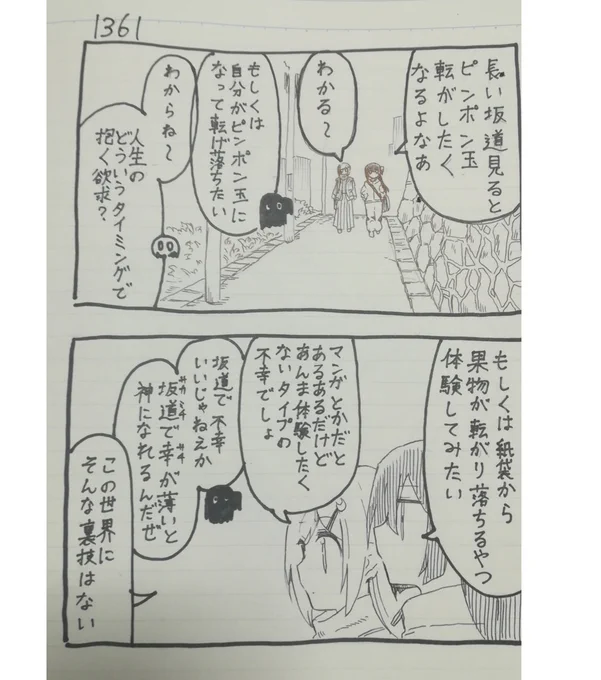 1361
長い坂道見ると
ピンポン玉
転がしたく
なるよなあ
わかる〜
もしくは
自分がピンポン玉に
なって転げ落ちたい
わからね〜
人生の
どういうタイミングで
抱く欲求?
もしくは紙袋から
果物が転がり落ちるやつ
体験してみたい
マンガとかだと
あるあるだけど
あんま体験したく
ないタイプの
不幸でしょ
坂道で不幸
いいじゃねえか
坂道で幸が薄いと
神になれるんだぜ
この世界に
そんな裏技はない